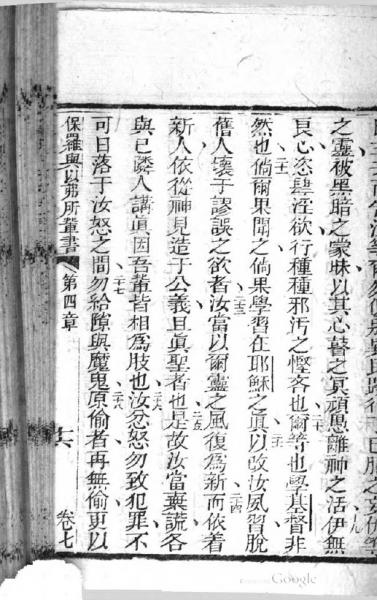 十九
之靈被黑暗之蒙昧以其心瞽之冥頑愚離神之活伊無
良心恣肆淫欲行種種邪污之慳吝也爾等也學基督非
二十
然也倘爾果聞之倘果學習在耶穌之真以改汝風習脫
二一 二二
人壞于謬誤之欲者汝當以爾靈之風復為新而依着
二三 二四
新人依從神見造于公義且真聖者也是故汝當棄謊各
二五
與己鄰人講真因吾輩皆相為肢也汝忿怒勿致犯罪不
二六
可日落于汝怒之間勿給隙與魔鬼原偷者再無偷更以
二七 二八
保羅與以弗所輩書 第四章 十六 卷七
Google